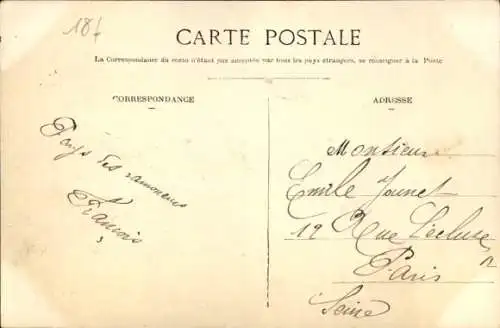 18f
CARTE POSTALE
La Correspondance du recto n'étant pas acceptée par tous les pays étrangers, se renseigner à la Poste
CORRESPONDANCE
ADRESSE
Pays des ramoneurs
François
Monsieur
Emile Jounet
12 Rue Lécluse
Paris
Seine